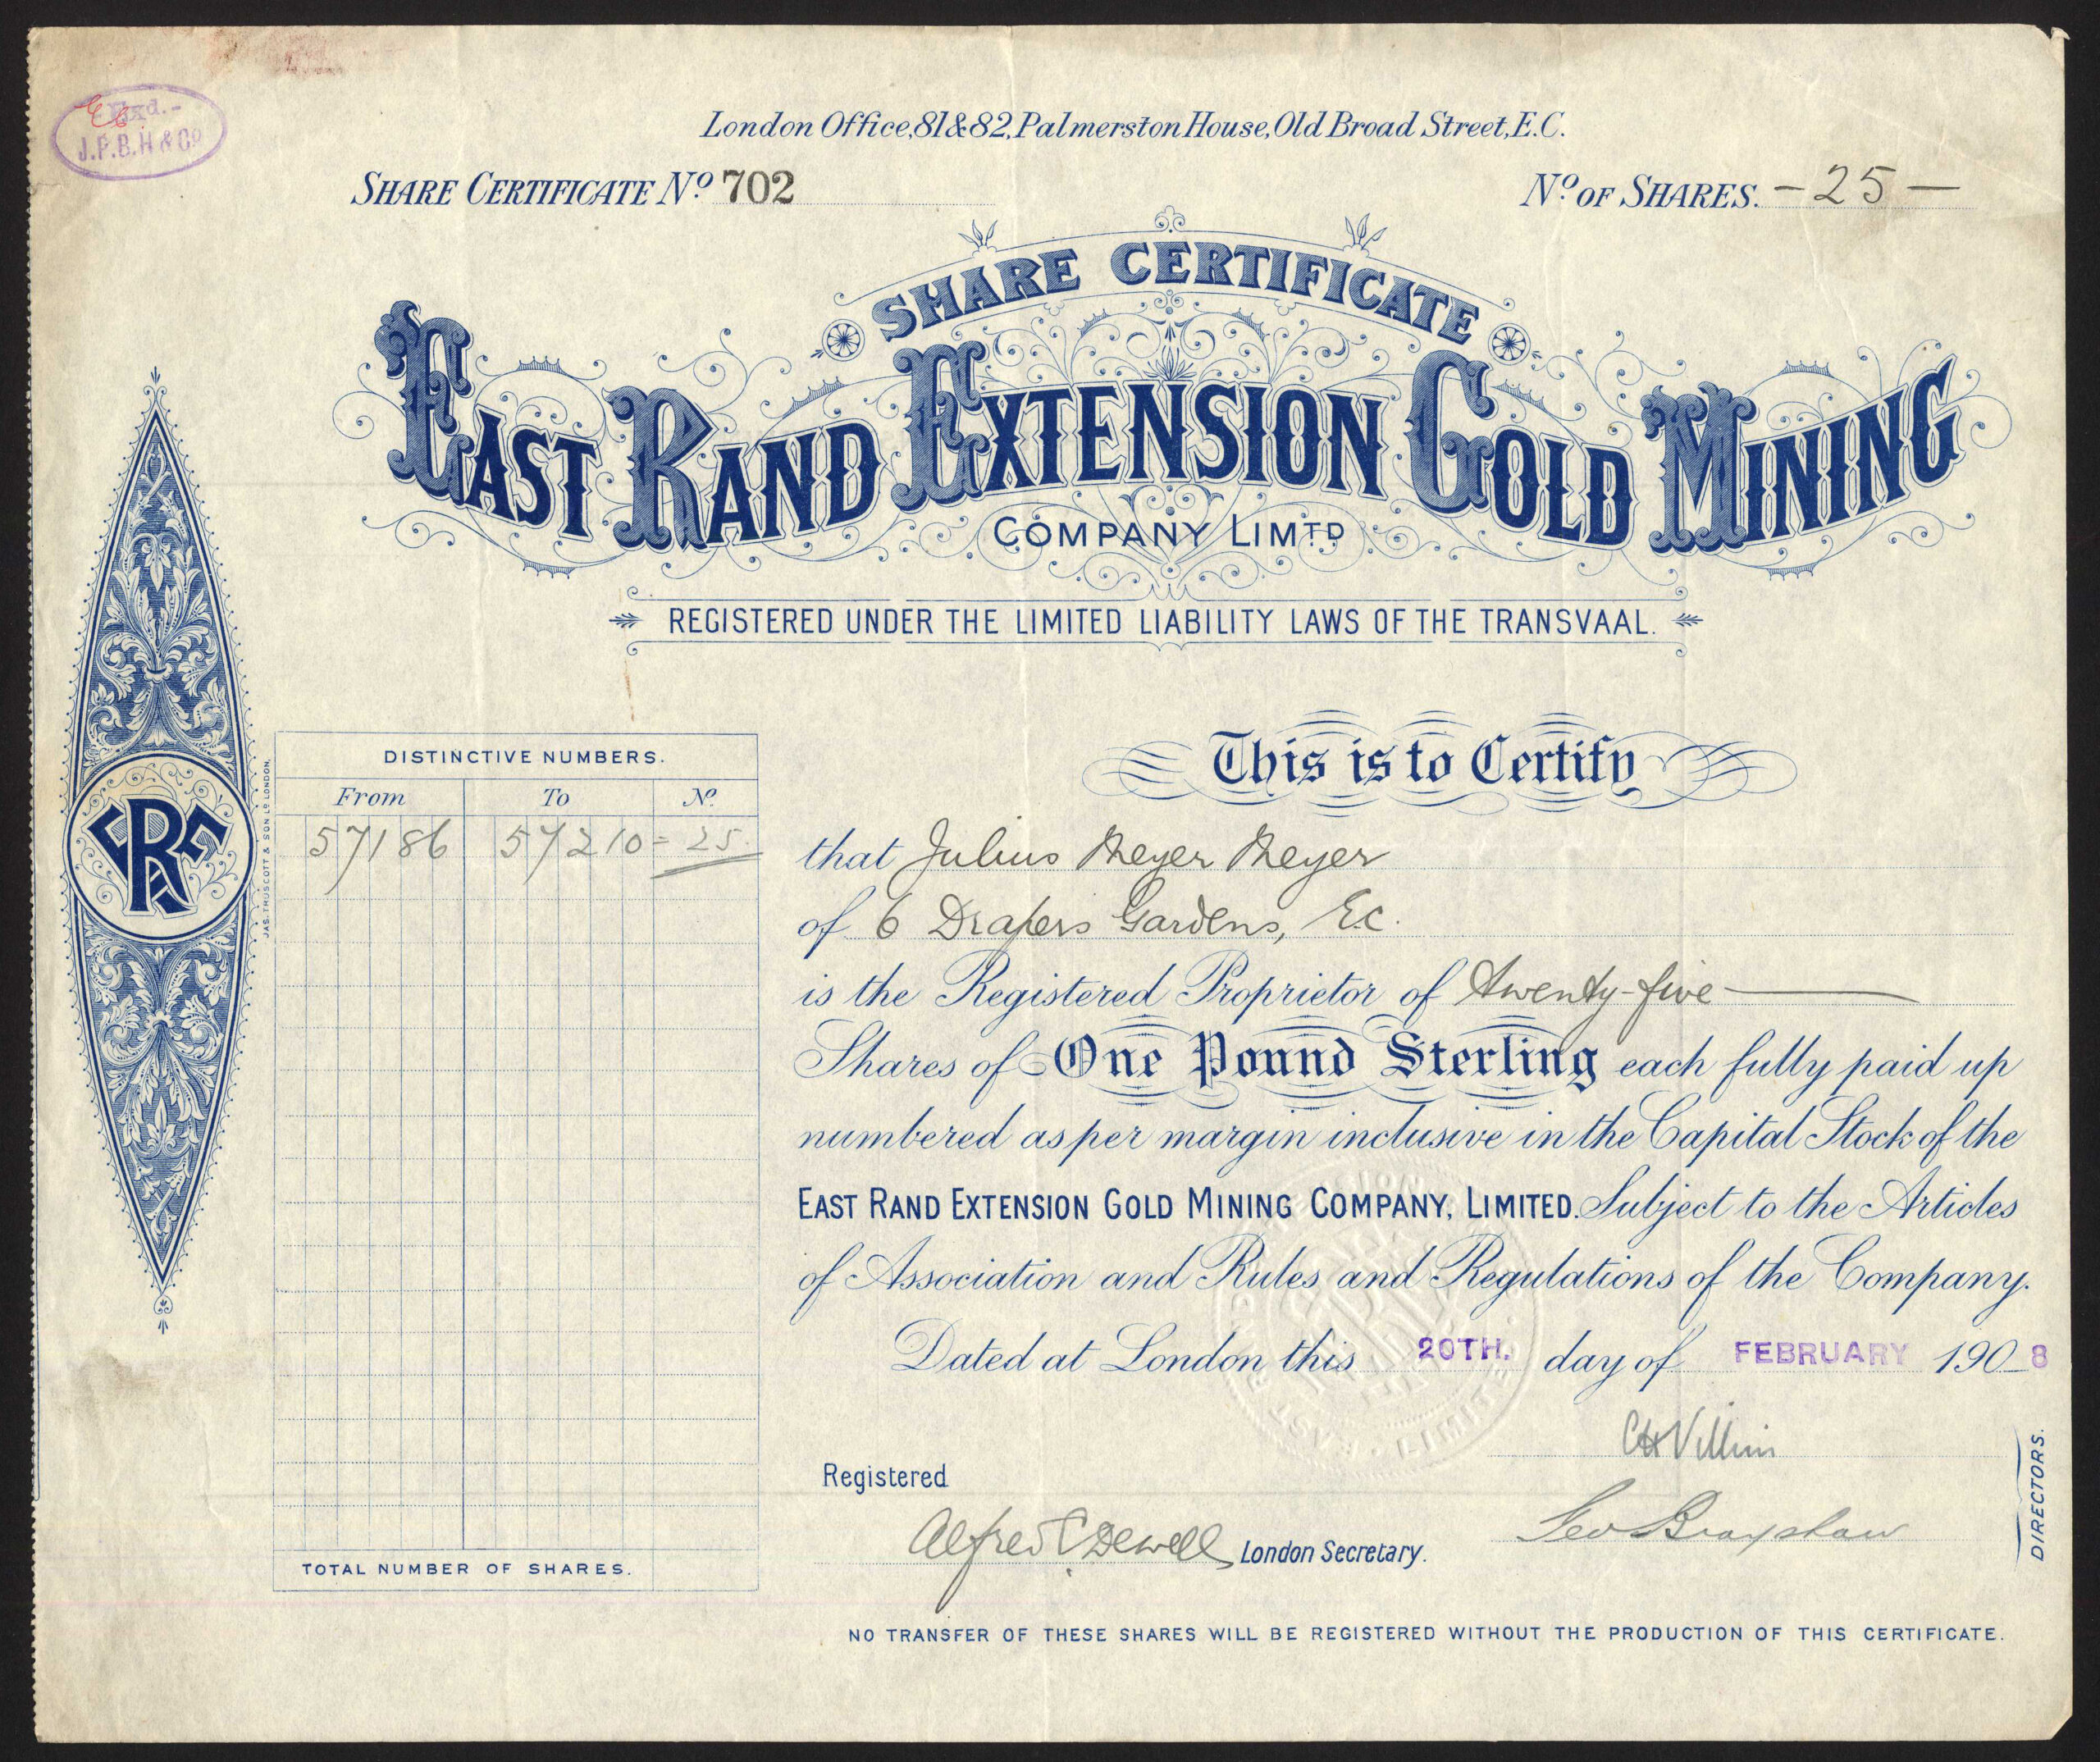 Exd.-
J.P.B.H & Co
London Office, 81 & 82, Palmerston House, Old Broad Street, E.C.
SHARE CERTIFICATE No 702
No OF SHARES. - 25 -
SHARE CERTIFICATE
EAST RAND EXTENSION GOLD MINING
COMPANY LIMTD
REGISTERED UNDER THE LIMITED LIABILITY LAWS OF THE TRANSVAAL.
DISTINCTIVE NUMBERS.
From To No.
57186 57210 = 25
TOTAL NUMBER OF SHARES.
JAS. TRUSCOTT & SON LD LONDON.
This is to Certify
that Julius Meyer Meyer
of 6 Drapers Gardens, E.C.
is the Registered Proprietor of twenty-five
Shares of One Pound Sterling each fully paid up
numbered as per margin inclusive in the Capital Stock of the
EAST RAND EXTENSION GOLD MINING COMPANY, LIMITED. Subject to the Articles
of Association and Rules and Regulations of the Company.
Dated at London this 20TH. day of FEBRUARY 190 8
Registered
Alfred C Dewell London Secretary.
Geo Brayshaw
DIRECTORS.
NO TRANSFER OF THESE SHARES WILL BE REGISTERED WITHOUT THE PRODUCTION OF THIS CERTIFICATE.